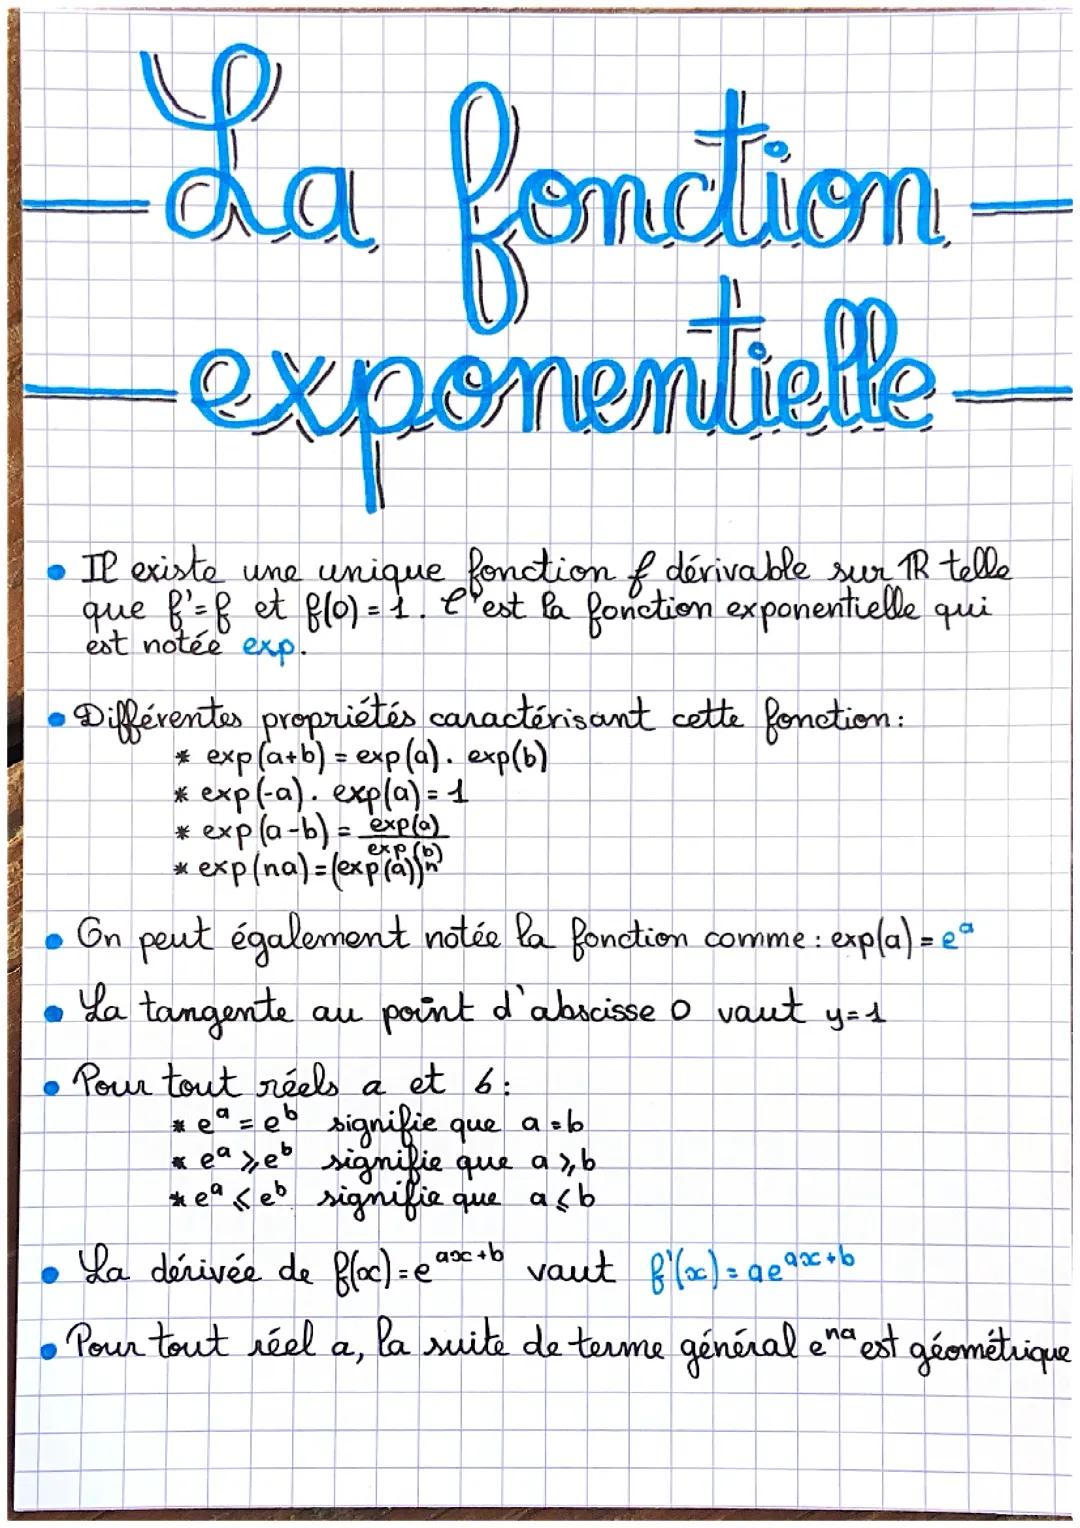 La fonction
exponentielle
• Il existe une unique fonction f dérivable sur ℝ telle
que f'=f et f(0) = 1. C'est la fonction exponentielle qui
est notée exp.
• Différentes propriétés caractérisant cette fonction:
* exp(a+b) = exp(a). exp(b)
* exp(-a). exp(a) = 1
* exp(a-b) = exp(a)/exp(b)
* exp(na) = (exp(a))ⁿ
• On peut également notée la fonction comme : exp(a) = eᵃ
• La tangente au point d'abscisse 0 vaut y=1
• Pour tout réels a et b:
* eᵃ = eᵇ signifie que a=b
* eᵃ ⩾ eᵇ signifie que a ⩾ b
* eᵃ ⩽ eᵇ signifie que a ⩽ b
• La dérivée de f(x) = e^(ax+b) vaut f'(x) = ae^(ax+b)
• Pour tout réel a, la suite de terme général e^(na) est géométrique